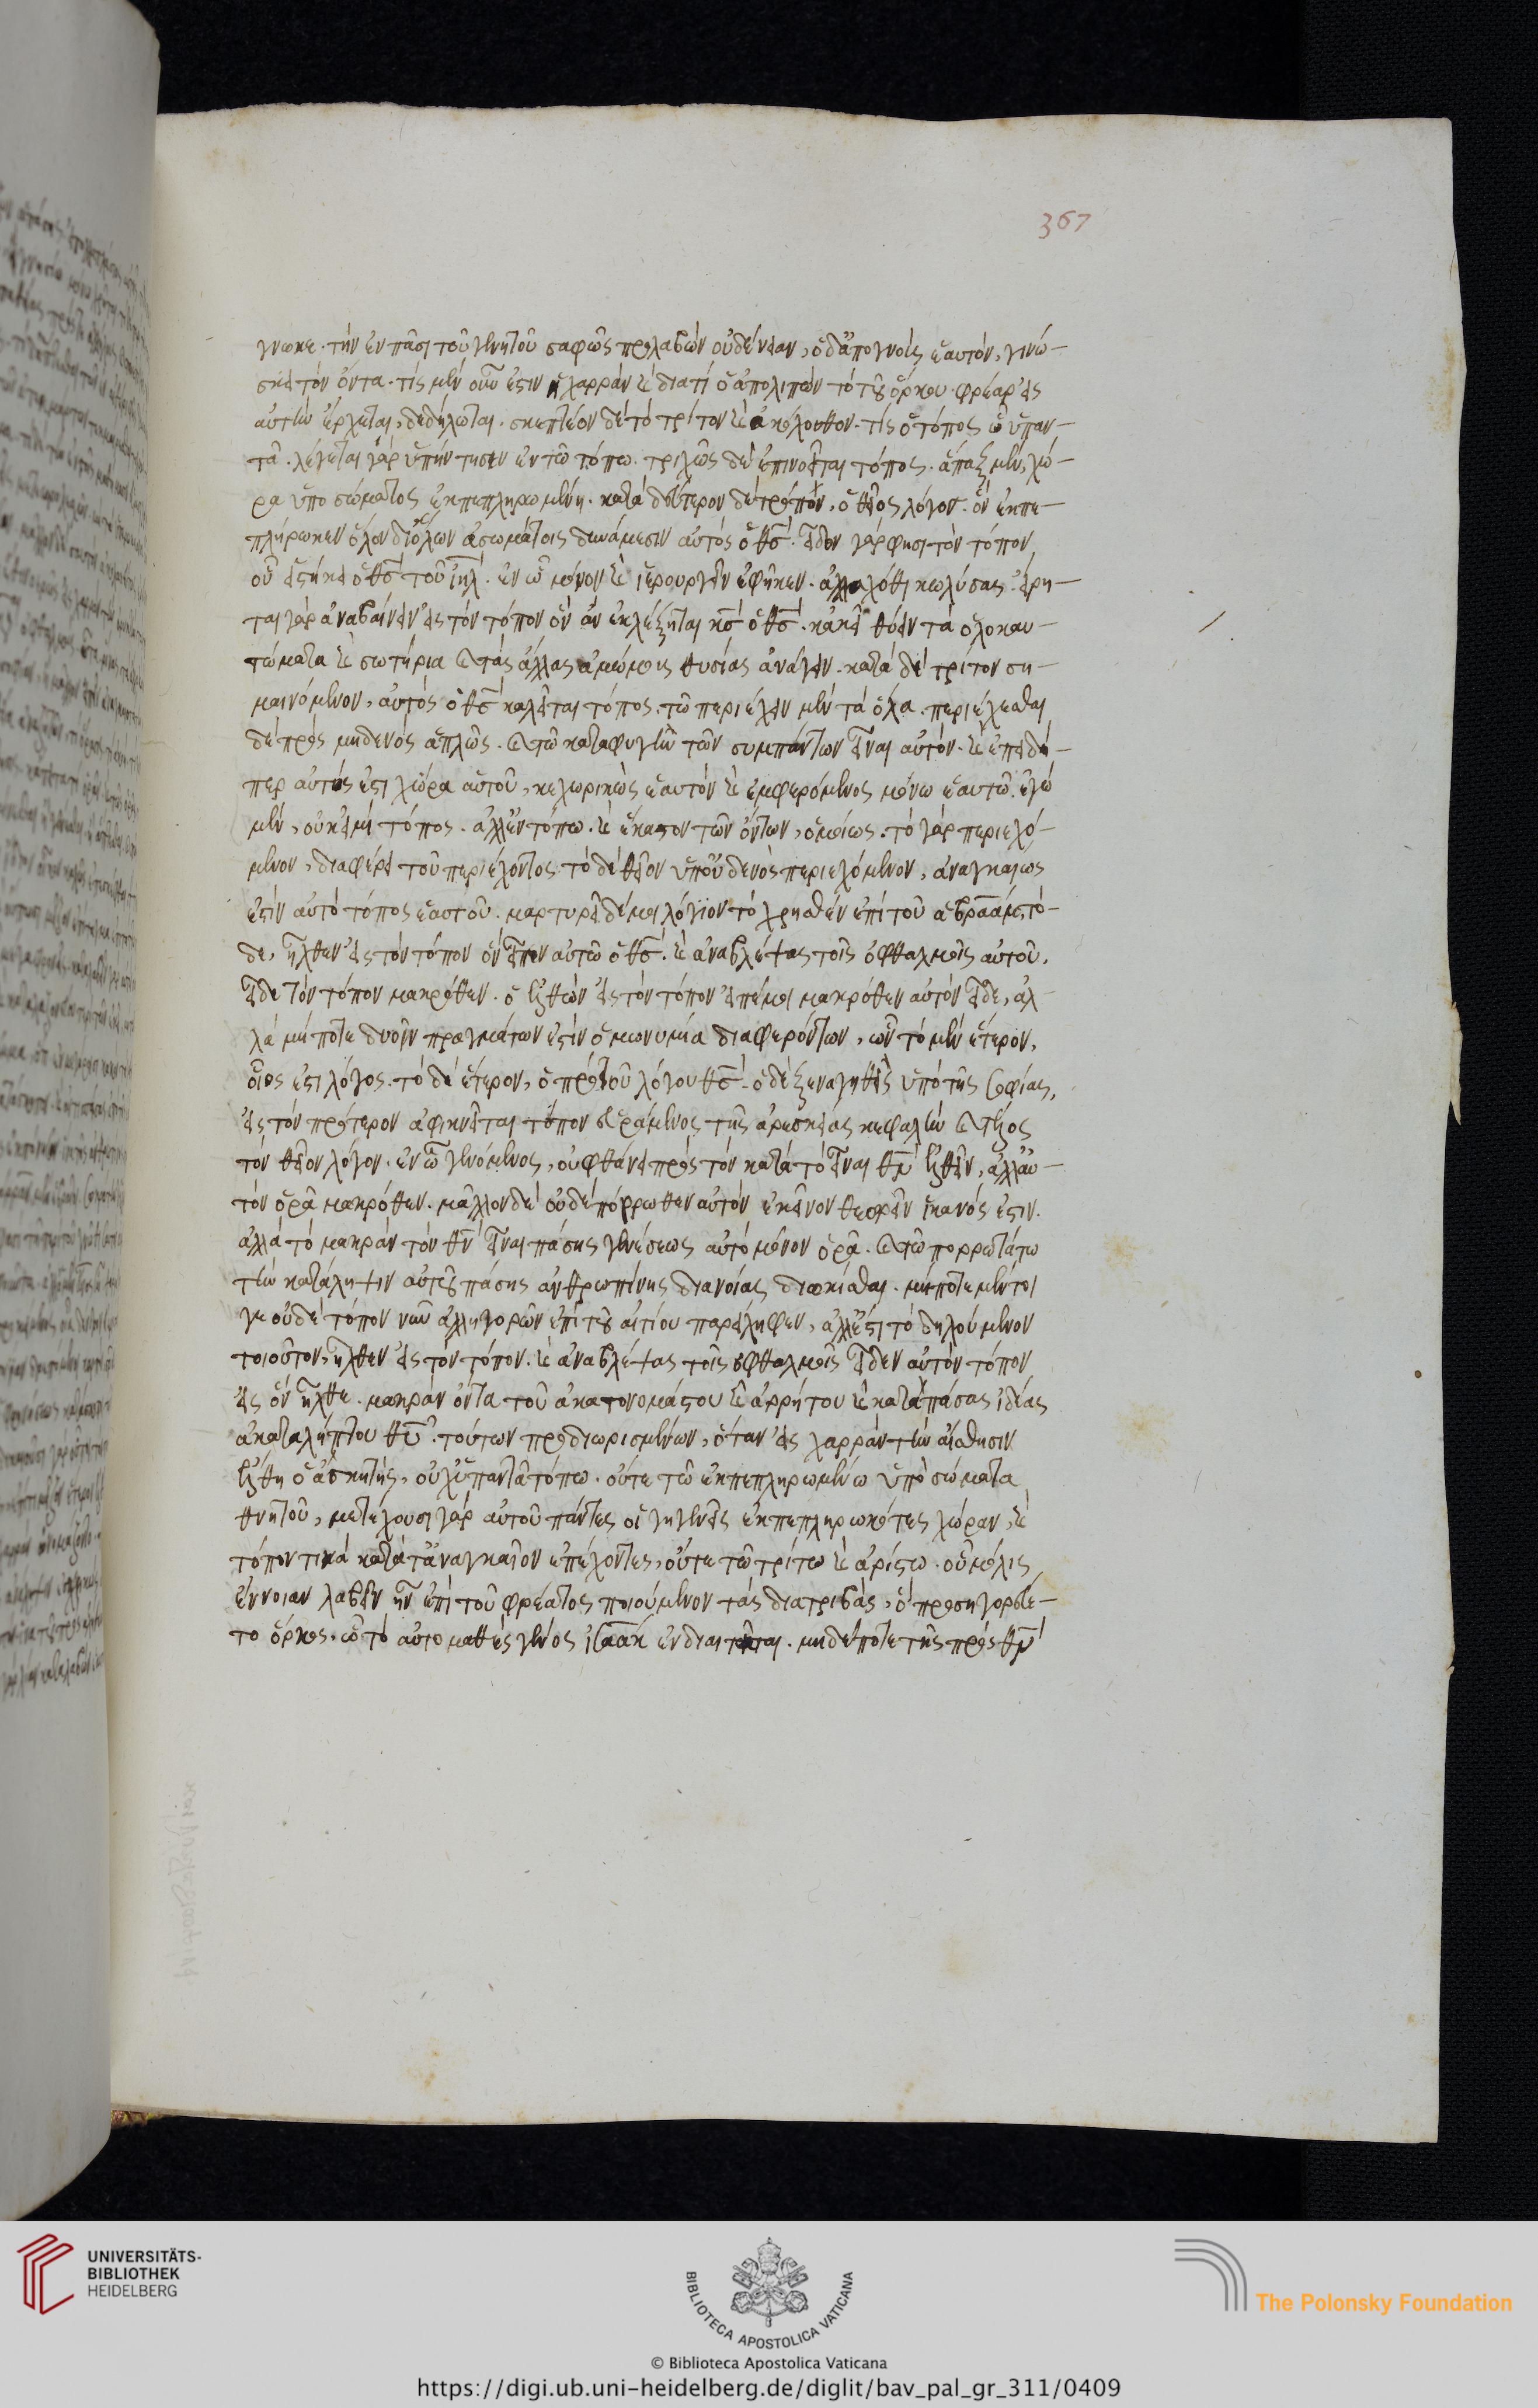 367
γνωκε. τὴν ἐν πᾶσι τοῦ γενητοῦ σαφῶς προλαβὼν οὐδένειαν, ὁ δ' ἀπογνοὺς ἑαυτόν, γινώ-
σκει τὸν ὄντα. τίς μὲν οὖν ἐστιν ἡ χαρρὰν καὶ διατί ὁ ἀπολιπὼν τὸ τοῦ ὅρκου φρέαρ εἰς
αὐτὴν ἔρχεται, δεδήλωται. σκεπτέον δὲ τὸ τρίτον καὶ ἀκόλουθον. τίς ὁ τόπος ᾧ ὑπαν-
τᾶ. λέγεται γὰρ ὑπήντησεν ἐν τῶ τόπω. τριχῶς δὲ ἐπινοεῖται τόπος. ἅπαξ μὲν, χώ-
ρα ὑπὸ σώματος ἐκπεπληρωμένη. κατὰ δεύτερον δὲ τρόπον, ὁ θεῖος λόγος. ὃν ἐκπε-
πλήρωκεν ὅλον δι' ὅλων ἀσωμάτοις δυνάμεσιν αὐτὸς ὁ θσ. εἶδον γάρ φησι τὸν τόπον
οὗ εἱστήκει ὁ θσ τοῦ ιηλ. ἐν ᾧ μόνον καὶ ἱερουργεῖν ἐφῆκεν. ἀλλαχόθι κωλύσας. εἴρη-
ται γὰρ ἀναβαίνειν εἰς τὸν τόπον ὃν ἂν ἐκλέξηται κσ ὁ θσ. κἀκεῖ θύειν τὰ ὁλοκαυ-
τώματα καὶ σωτήρια καὶ τὰς ἄλλας ἀμώμους θυσίας ἀνάγειν. κατὰ δὲ τρίτον ση-
μαινόμενον, αὐτὸς ὁ θσ καλεῖται τόπος. τῶ περιέχειν μὲν τὰ ὅλα. περιέχεσθαι
δὲ πρὸς μηδενὸς ἁπλῶς. καὶ τῶ καταφυγὴν τῶν συμπάντων εἶναι αὐτόν. καὶ ἐπειδή-
περ αὐτός ἐστι χώρα αὑτοῦ, κεχωρικὼς ἑαυτὸν καὶ ἐμφερόμενος μόνω ἑαυτῶ. ἐγὼ
μὲν, οὐκ εἰμὶ τόπος. ἀλλ' ἐν τόπω. καὶ ἕκαστον τῶν ὄντων, ὁμοίως. τὸ γὰρ περιεχό-
μενον, διαφέρει τοῦ περιέχοντος. τὸ δὲ θεῖον ὑπ' οὐδενὸς περιεχόμενον, ἀναγκαίως
ἐστὶν αὐτὸ τόπος ἑαυτοῦ. μαρτυρεῖ δέ μοι λόγιον τὸ χρησθὲν ἐπὶ τοῦ ἀβραάμ, τό-
δε, ἦλθεν εἰς τὸν τόπον ὃν εἶπεν αὐτῶ ὁ θσ. καὶ ἀναβλέψας τοῖς ὀφθαλμοῖς αὐτοῦ,
εἶδε τὸν τόπον μακρόθεν. ὁ ἐλθὼν εἰς τὸν τόπον εἰπέ μοι μακρόθεν αὐτὸν εἶδε, ἀλ-
λὰ μήποτε δυοῖν πραγμάτων ἐστὶν ὁμωνυμία διαφερόντων, ὧν τὸ μὲν ἕτερον,
θεῖος ἐστι λόγος. τὸ δὲ ἕτερον, ὁ πρὸ τοῦ λόγου θσ. ὁ δὲ ξεναγηθεὶς ὑπὸ τῆς σοφίας,
εἰς τὸν πρότερον ἀφικνεῖται τόπον εὑράμενος τῆς ἀρεσκείας κεφαλὴν καὶ τέλος
τὸν θεῖον λόγον. ἐν ᾧ γενόμενος, οὐ φθάνει πρὸς τὸν κατὰ τὸ εἶναι θν ἐλθεῖν, ἀλλ' αὐ-
τὸν ὁρᾶ μακρόθεν. μᾶλλον δὲ οὐδὲ πόρρωθεν αὐτὸν ἐκεῖνον θεωρεῖν ἱκανός ἐστιν.
ἀλλὰ τὸ μακρὰν τὸν θν εἶναι πάσης γενέσεως αὐτὸ μόνον ὁρᾶ. καὶ τῶ πορρωτάτω
τὴν κατάληψιν αὐτοῦ πάσης ἀνθρωπίνης διανοίας διωκίσθαι. μήποτε μέντοι
γε οὐδὲ τόπον νῦν ἀλληγορῶν ἐπὶ τοῦ αἰτίου παρείληφεν, ἀλλ' ἔστι τὸ δηλούμενον
τοιοῦτον, ἦλθεν εἰς τὸν τόπον. καὶ ἀναβλέψας τοῖς ὀφθαλμοῖς εἶδεν αὐτὸν τόπον
εἰς ὃν ἦλθε. μακρὰν ὄντα τοῦ ἀκατονομάστου καὶ ἀρρήτου καὶ κατὰ πάσας ἰδέας
ἀκαταλήπτου θυ. τούτων προδιωρισμένων, ὅταν εἰς χαρρὰν τὴν αἴσθησιν
ἔλθη ὁ ἀσκητὴς, οὐχ ὑπαντᾶ τόπω. οὔτε τῶ ἐκπεπληρωμένω ὑπὸ σώματα
θνητοῦ, μετέχουσι γὰρ αὐτοῦ πάντες οἱ γηγενεῖς ἐκπεπληρωκότες χώραν, καὶ
τόπον τινὰ κατὰ τἀναγκαῖον ἐπέχοντες, οὔτε τῶ τρίτω καὶ ἀρίστω. οὗ μόλις
ἔννοιαν λαβεῖν ἦν ἐπὶ τοῦ φρέατος ποιούμενον τὰς διατριβάς, ὃ προσηγορεύε-
το ὅρκος. ᾧ τὸ αὐτομαθὲς γένος ἰσαὰκ ἐνδιαιτᾶται. μηδέποτε τῆς πρὸς θν
UNIVERSITÄTS-
BIBLIOTHEK
HEIDELBERG
BIBLIOTECA APOSTOLICA VATICANA
The Polonsky Foundation
© Biblioteca Apostolica Vaticana
https://digi.ub.uni-heidelberg.de/diglit/bav_pal_gr_311/0409